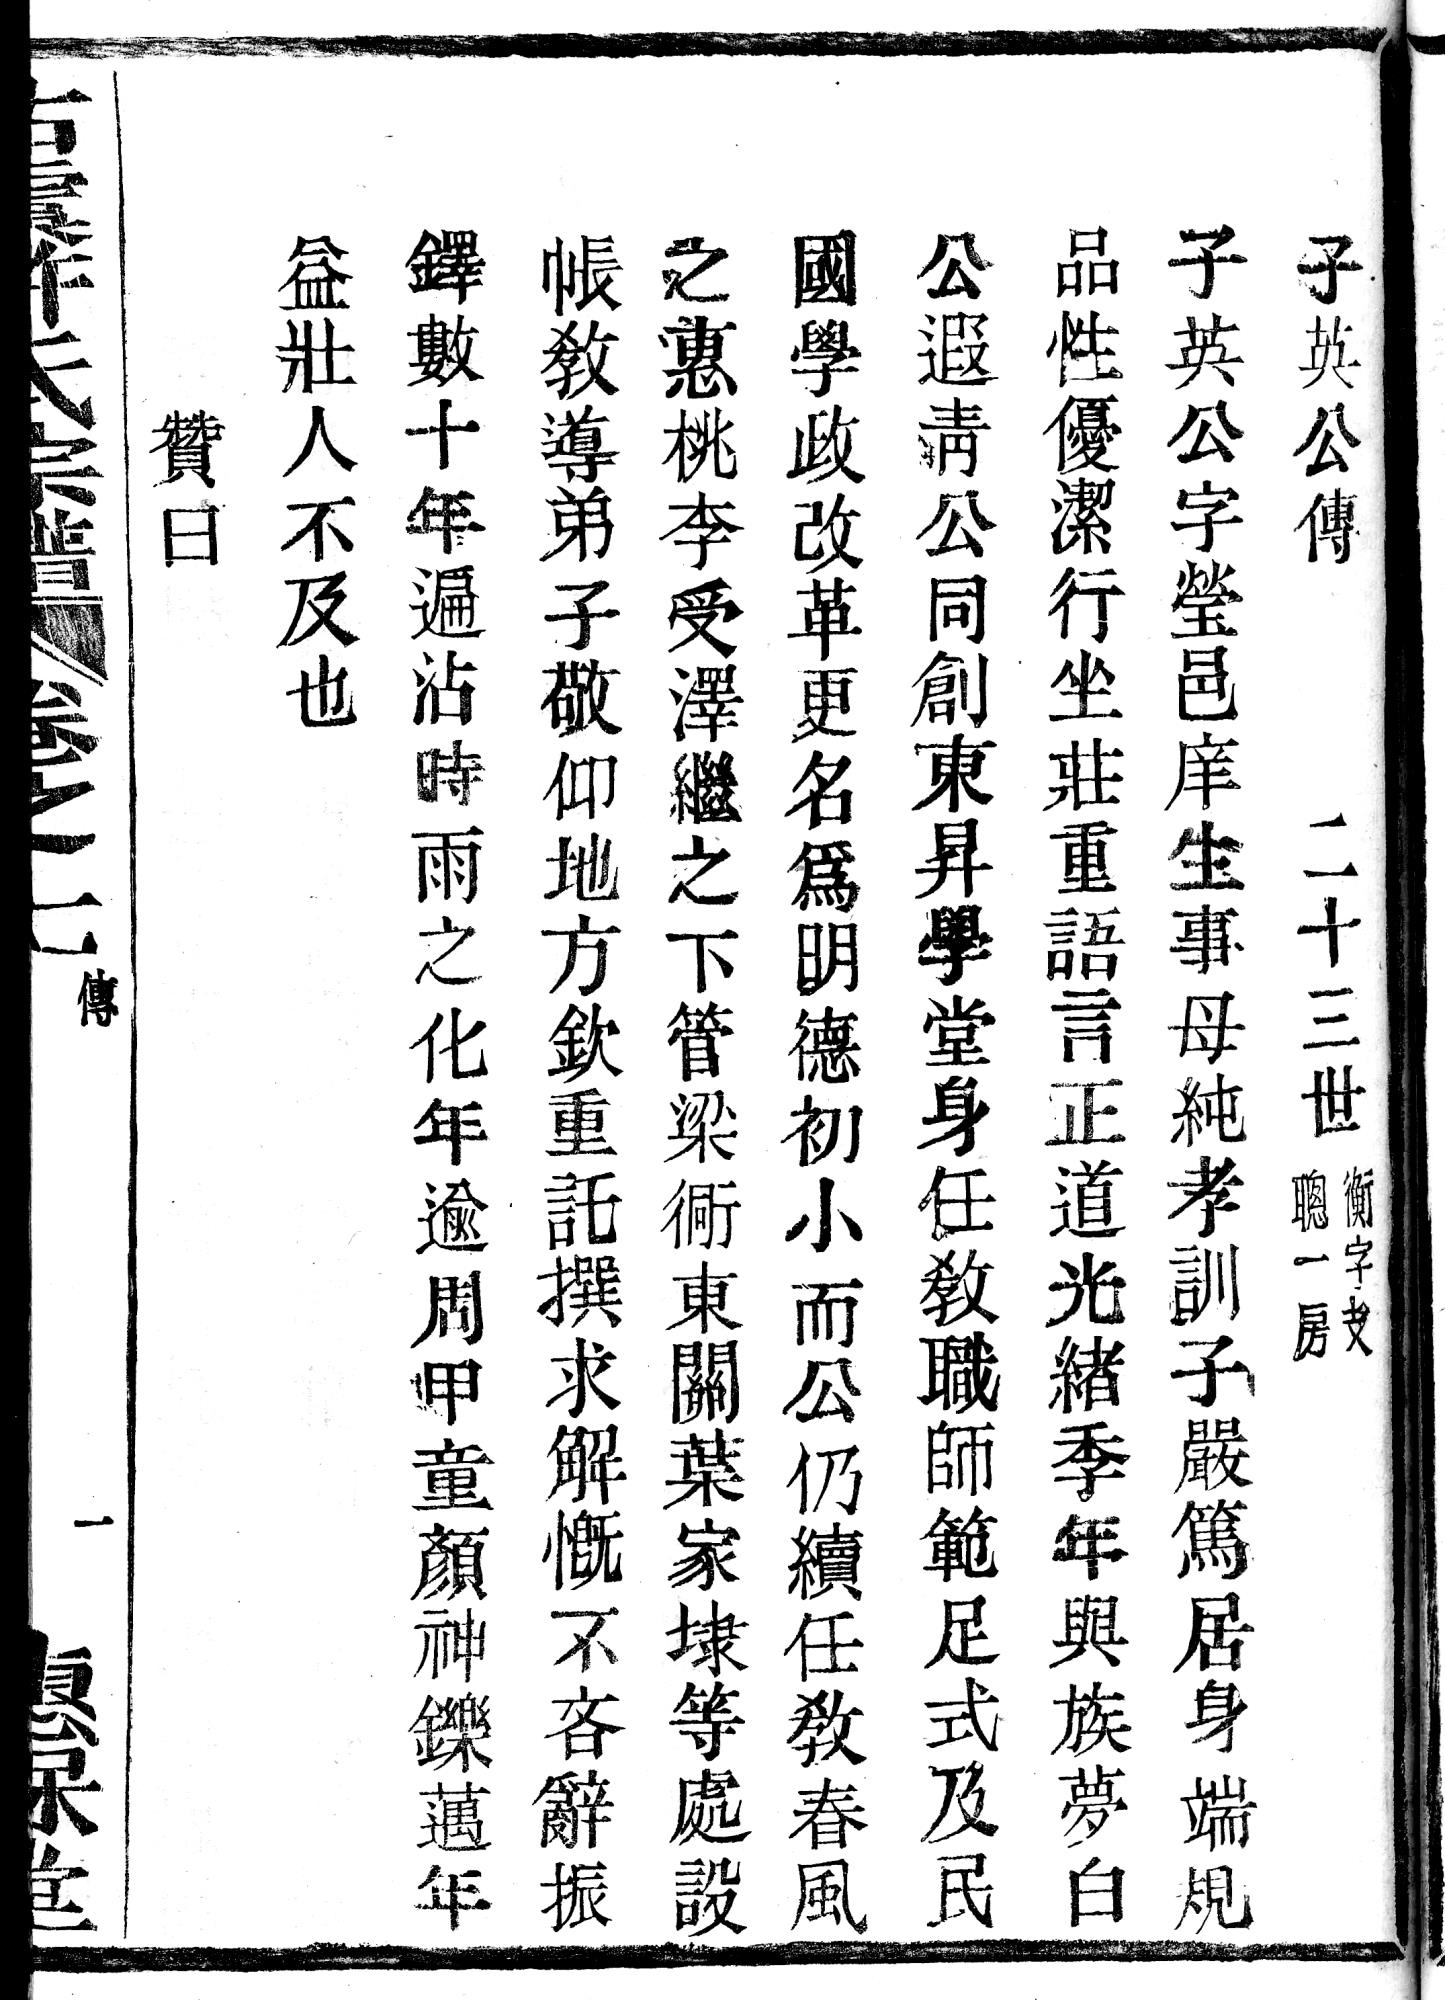 子英公傳　二十三世　衡字支聰一房
子英公字瑩邑庠生事母純孝訓子嚴篤居身端規
品性優潔行坐莊重語言正道光緒季年與族夢白
公遐青公同創東昇學堂身任教職師範足式及民
國學政改革更名爲明德初小而公仍續任教春風
之惠桃李受澤繼之下管梁衕東關葉家埭等處設
帳教導弟子敬仰地方欽重託撰求解慨不吝辭振
鐸數十年遍沾時雨之化年逾周甲童顏神鑠邁年
益壯人不及也
贊曰
氏宗譜　卷之一　傳　一